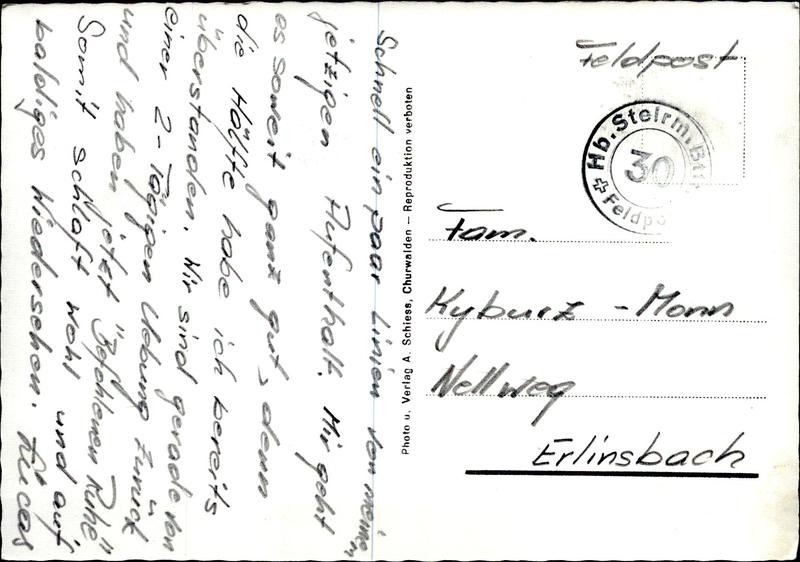 Schnell ein paar Linien von meinem
jetzigen Aufenthalt. Mir geht
es soweit ganz gut, denn
die Hälfte habe ich bereits
überstanden. Wir sind gerade von
einer 2-Tägigen Uebung zurück
und haben jetzt "Befohlenen Ruhe"
Somit schlaft wohl und auf
baldiges Wiedersehen. Lucas
Photo u. Verlag A. Schiess, Churwalden — Reproduktion verboten
Feldpost
Hb. Steirm. Bttr
30
Feldpo
Fam.
Kyburz - Mann
Nellweg
Erlinsbach